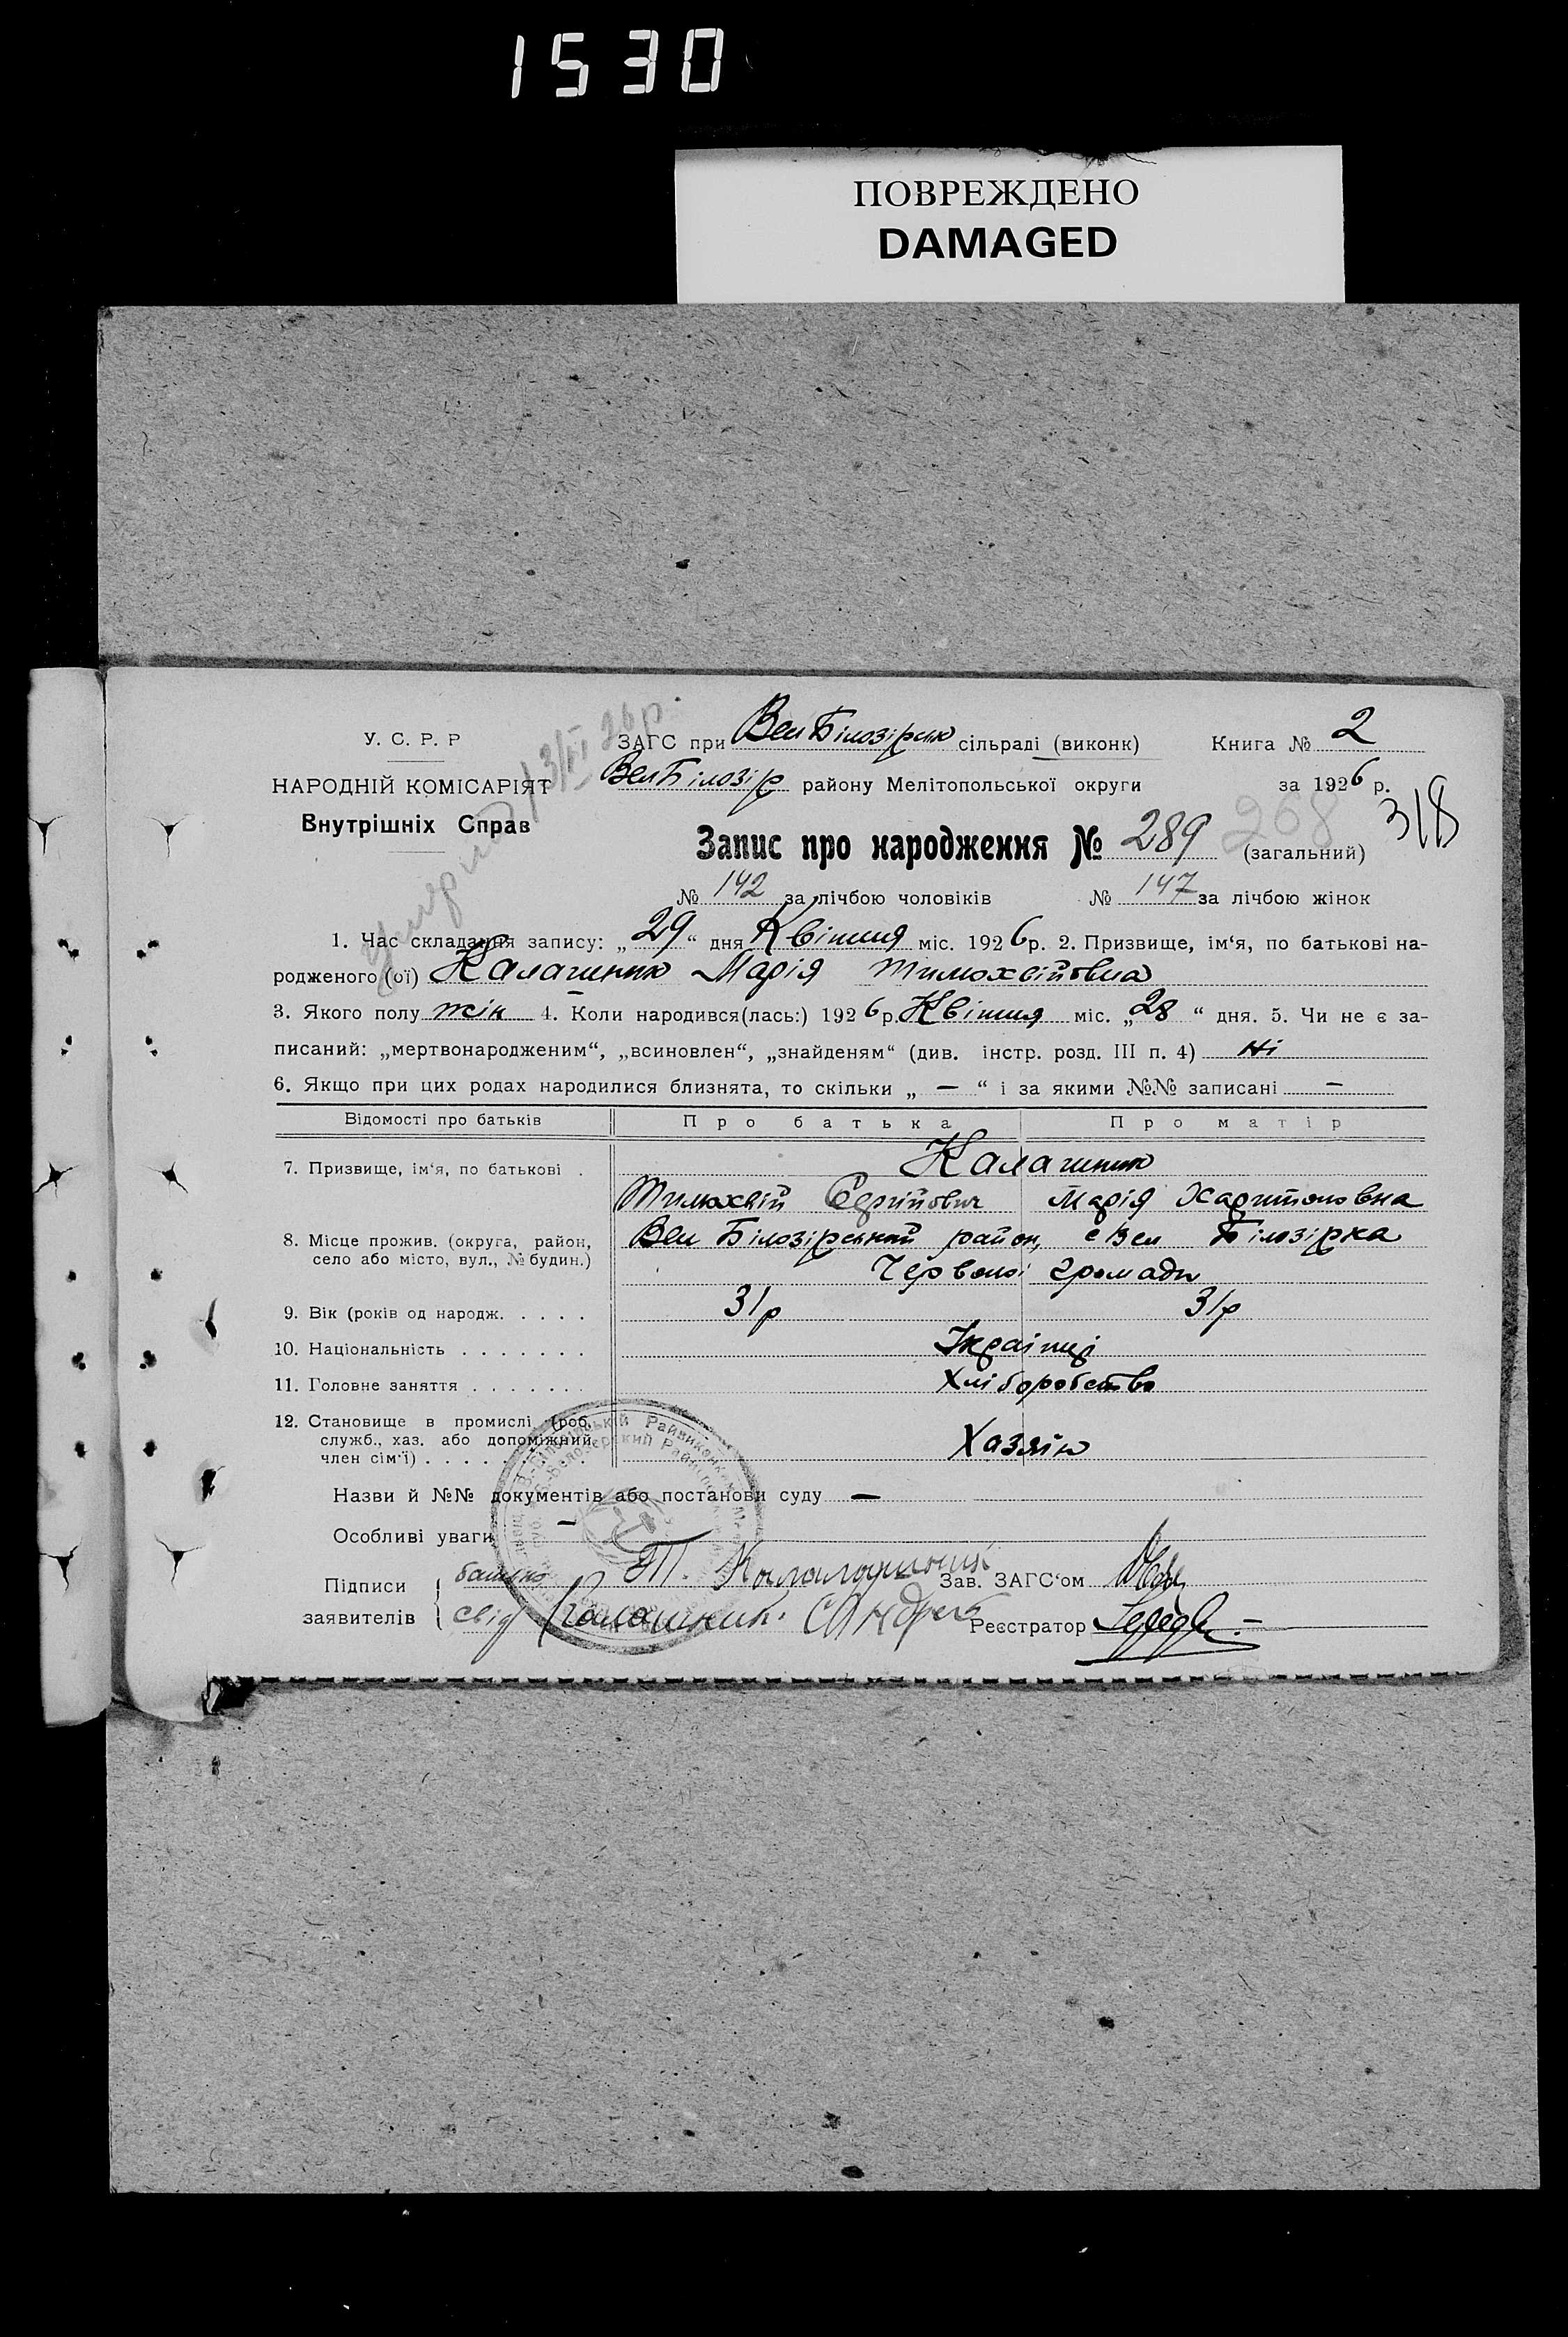 1530
ПОВРЕЖДЕНО
DAMAGED
У. С. Р. Р
НАРОДНІЙ КОМІСАРІЯТ
Внутрішніх Справ
ЗАГС при ВелБілозірськ сільраді (виконк) Книга № 2
ВелБілозір району Мелітопольської округи за 1926 р.
318
Запис про народження № 289 268 (загальний)
№ 142 за лічбою чоловіків № 147 за лічбою жінок
1. Час складання запису: „29“ дня Квітня міс. 1926 р. 2. Призвище, ім‘я, по батькові на-
родженого (ої) Калашник Марія Тимохвіївна
3. Якого полу жін 4. Коли народився(лась:) 1926 р. Квітня міс. „28“ дня. 5. Чи не є за-
писаний: „мертвонародженим“, „всиновлен“, „знайденям“ (див. інстр. розд. III п. 4) Ні
6. Якщо при цих родах народилися близнята, то скільки „ — “ і за якими №№ записані —
Відомості про батьків Про батька Про матір
7. Призвище, ім‘я, по батькові . Калашник
Тимохвій Марія Харитоновна
8. Місце прожив. (округа, район, село або місто, вул., № будин.) Вел Білозірський район, с Вел Білозірка
Червоної громади
9. Вік (років од народж. . . . . 31р 31р
10. Національність . . . . . . . Українці
11. Головне заняття . . . . . . . Хліборобство
12. Становище в промислі (роб. служб., хаз. або допоміжний член сім‘ї) . . . . . . . Хазяїн
Назви й №№ документів або постанови суду —
Особливі уваги —
Підписи батько Т. Зав. ЗАГС‘ом
заявителів свід Калашник Реєстратор